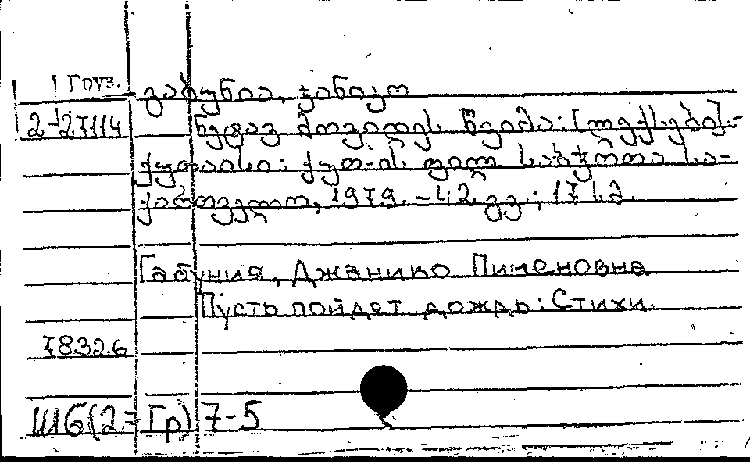 Груз. გაბუნია, ჯანიკო
2-27114 ნეტავ მოვიდეს წვიმა: [ლექსები].-
ქუთაისი: ქუთ-ის ფილ. საბჭოთა სა-
ქართველო, 1979. -42 გვ.; 17 სმ.
Габуния, Джанико Пименовна
Пусть пойдет дождь: Стихи.
78326
Ш6(2=Гр)7-5